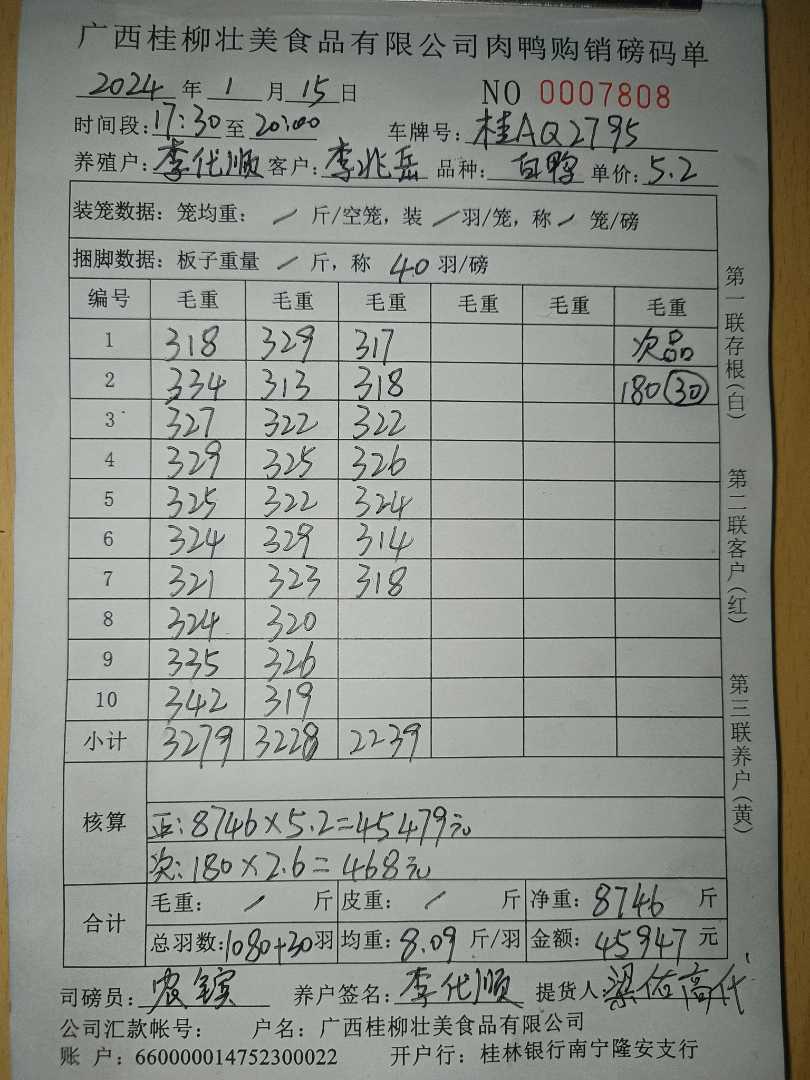 广西桂柳壮美食品有限公司肉鸭购销磅码单
2024年1月15日 NO 0007808
时间段:17:30至20:00 车牌号:桂AQ2795
养殖户:李代顺 客户:李兆岳 品种:白鸭 单价:5.2
装笼数据:笼均重: / 斤/空笼,装 / 羽/笼,称 / 笼/磅
捆脚数据:板子重量 / 斤,称 40 羽/磅
编号 毛重 毛重 毛重 毛重 毛重 毛重
1 318 329 317 次品
2 334 313 318 180(30)
3 327 322 322
4 329 325 326
5 325 322 324
6 324 329 314
7 321 323 318
8 324 320
9 335 326
10 342 319
小计 3279 3228 2239
核算
正:8746×5.2=45479元
次:180×2.6=468元
合计
毛重: / 斤 皮重: / 斤 净重:8746 斤
总羽数:1080+30羽 均重:8.09 斤/羽 金额:45947元
司磅员:农镔 养户签名:李代顺 提货人:梁佑高代
公司汇款帐号: 户名:广西桂柳壮美食品有限公司
账 户:660000014752300022 开户行:桂林银行南宁隆安支行
第一联存根(白) 第二联客户(红) 第三联养户(黄)